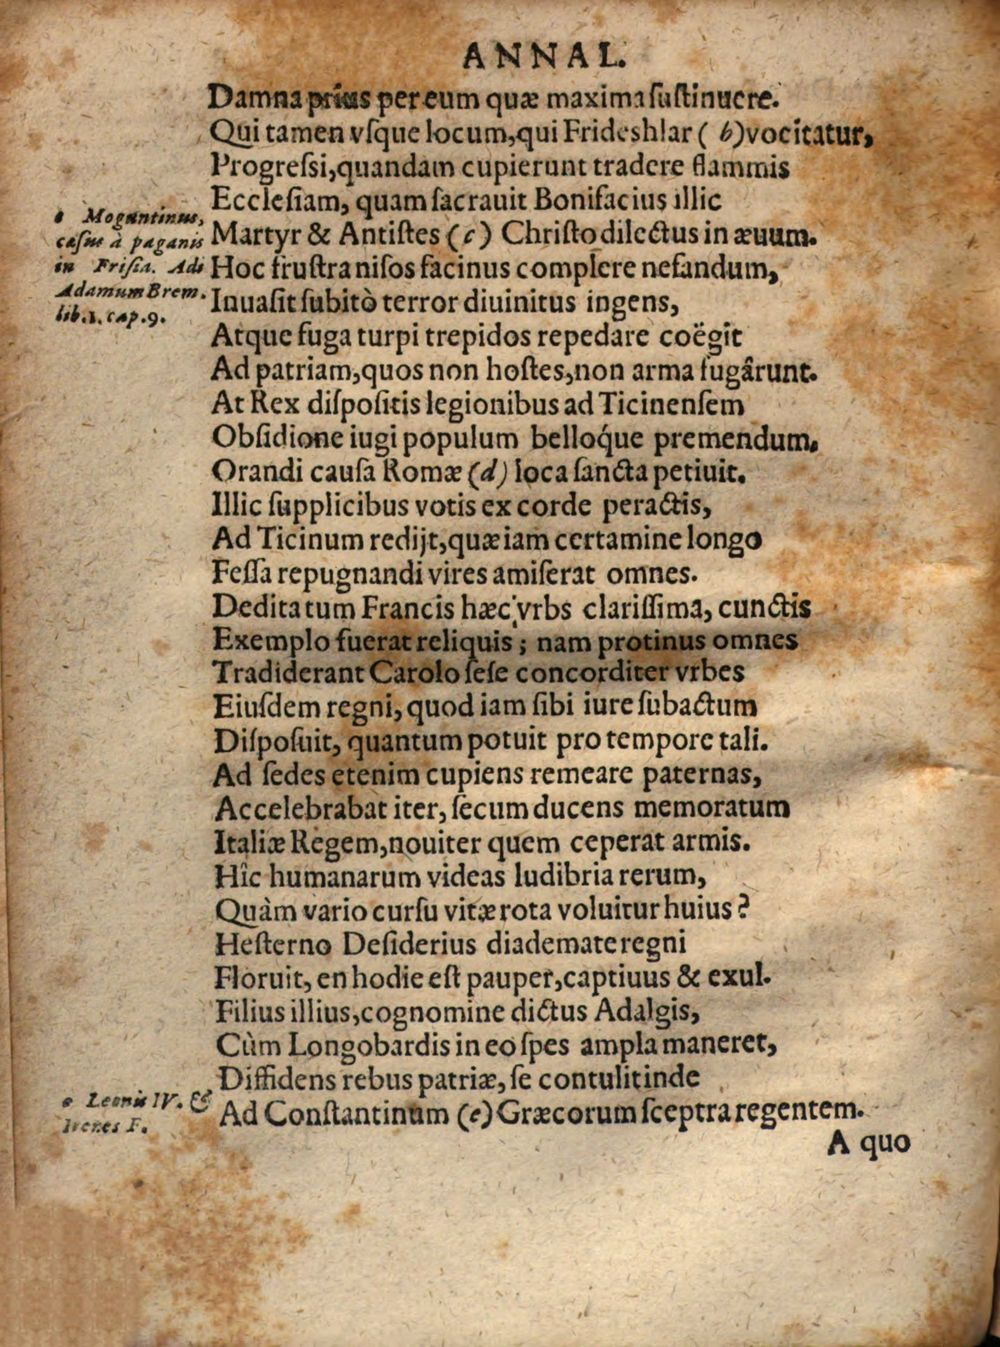 ANNAL.
Damna priùs per eum quæ maxima ſuſtinuere.
Qui tamen vſque locum, qui Frideshlar (b) vocitatur,
Progreſsi, quandam cupierunt tradere flammis
Eccleſiam, quam ſacrauit Bonifacius illic
Martyr & Antiſtes (c) Chriſto dilectus in æuum.
Hoc fruſtra niſos facinus complere nefandum,
Inuaſit ſubitò terror diuinitus ingens,
Atque fuga turpi trepidos repedare coëgit
Ad patriam, quos non hoſtes, non arma fugârunt.
At Rex diſpoſitis legionibus ad Ticinenſem
Obſidione iugi populum belloq́ue premendum,
Orandi cauſa Romæ (d) loca ſancta petiuit.
Illic ſupplicibus votis ex corde peractis,
Ad Ticinum redijt, quæ iam certamine longo
Feſſa repugnandi vires amiſerat omnes.
Dedita tum Francis hæc vrbs clariſſima, cunctis
Exemplo fuerat reliquis; nam protinus omnes
Tradiderant Carolo ſeſe concorditer vrbes
Eiuſdem regni, quod iam ſibi iure ſubactum
Diſpoſuit, quantum potuit pro tempore tali.
Ad ſedes etenim cupiens remeare paternas,
Accelebrabat iter, ſecum ducens memoratum
Italiæ Regem, nouiter quem ceperat armis.
Hîc humanarum videas ludibria rerum,
Quàm vario curſu vitæ rota voluitur huius?
Heſterno Deſiderius diademate regni
Floruit, en hodie eſt pauper, captiuus & exul.
Filius illius, cognomine dictus Adalgis,
Cùm Longobardis in eo ſpes ampla maneret,
Diffidens rebus patriæ, ſe contulit inde
Ad Conſtantinum (e) Græcorum ſceptra regentem.
A quo
c Moguntinus,
cæſus à paganis
in Friſia. Adi
Adamum Brem.
lib.1. cap.9.
e Leonis IV. &
Irenes F.